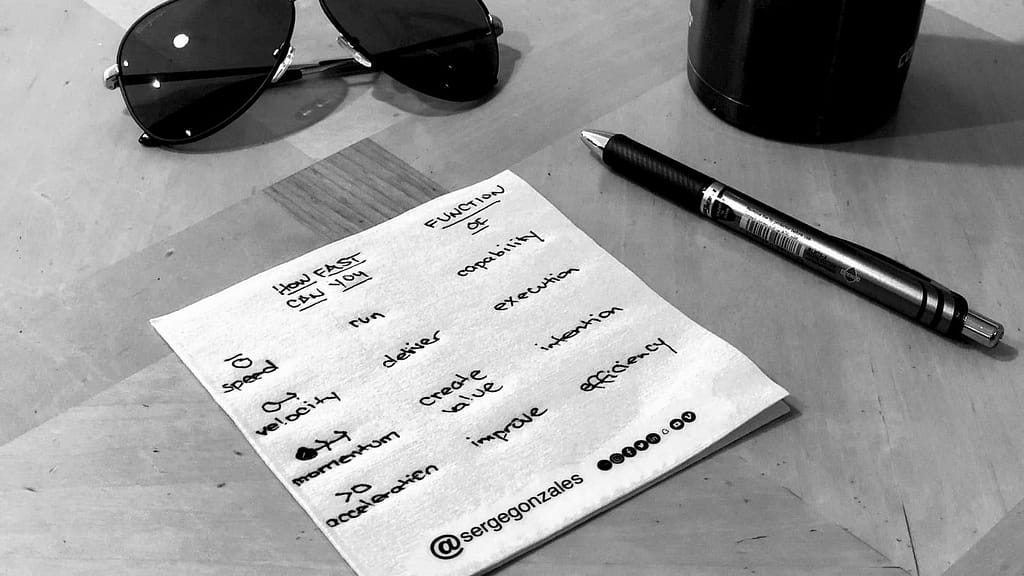 HOW FAST
CAN YOU
FUNCTION
OF
speed run capability
velocity deliver execution
momentum create
value intention
acceleration improve efficiency
@sergegonzales